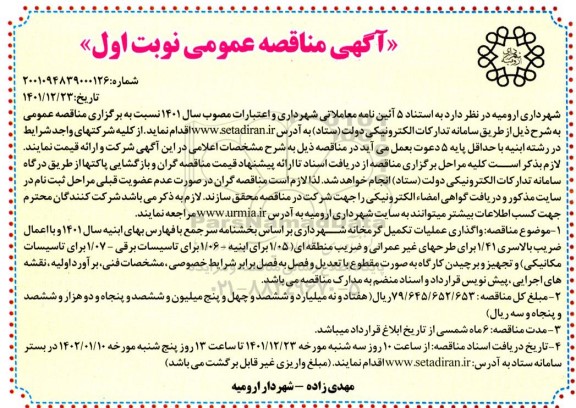 «آگهی مناقصه عمومی نوبت اول»
شماره: ۲۰۰۱۰۹۴۸۳۹۰۰۰۱۲۶
تاریخ: ۱۴۰۱/۱۲/۲۳
شهرداری ارومیه در نظر دارد به استناد ۵ آئین نامه معاملاتی شهرداری و اعتبارات مصوب سال ۱۴۰۱ نسبت به برگزاری مناقصه عمومی
به شرح ذیل از طریق سامانه تدارکات الکترونیکی دولت (ستاد) به آدرس www.setadiran.ir اقدام نماید. از کلیه شرکتهای واجد شرایط
در رشته ابنیه با حداقل پایه ۵ دعوت بعمل می آید در مناقصه ذیل به شرح مشخصات اعلامی در این آگهی شرکت و ارائه قیمت نمایند.
لازم بذکر است کلیه مراحل برگزاری مناقصه از دریافت اسناد تا ارائه پیشنهاد قیمت مناقصه گران و بازگشایی پاکتها از طریق درگاه
سامانه تدارکات الکترونیکی دولت (ستاد) انجام خواهد شد. لذا لازم است مناقصه گران در صورت عدم عضویت قبلی مراحل ثبت نام در
سایت مذکور و دریافت گواهی امضاء الکترونیکی را جهت شرکت در مناقصه محقق سازند. لازم به ذکر می باشد شرکت کنندگان محترم
جهت کسب اطلاعات بیشتر میتوانند به سایت شهرداری ارومیه به آدرس www.urmia.ir مراجعه نمایند.
۱-موضوع مناقصه: واگذاری عملیات تکمیل گرمخانه شهرداری بر اساس بخشنامه سرجمع با فهارس بهای ابنیه سال ۱۴۰۱ و با اعمال
ضریب بالاسری ۱/۴۱ برای طرحهای غیر عمرانی و ضریب منطقه ای (۱/۰۵ برای ابنیه - ۱/۰۶ برای تاسیسات برقی - ۱/۰۷ برای تاسیسات
مکانیکی) و تجهیز و برچیدن کارگاه به صورت مقطوع با تعدیل و فصل به فصل برابر شرایط خصوصی، مشخصات فنی، برآورد اولیه، نقشه
های اجرایی، پیش نویس قرارداد و اسناد منضم به مدارک مناقصه می باشد.
۲-مبلغ کل مناقصه: ۷۹/۶۴۵/۶۵۲/۶۵۳ ریال (هفتاد و نه میلیارد و ششصد و چهل و پنج میلیون و ششصد و پنجاه و دو هزار و ششصد
و پنجاه و سه ریال)
۳-مدت مناقصه: ۶ ماه شمسی از تاریخ ابلاغ قرارداد میباشد.
۴-تاریخ دریافت اسناد مناقصه: از ساعت ۱۰ روز سه شنبه مورخه ۱۴۰۱/۱۲/۲۳ تا ساعت ۱۳ روز پنج شنبه مورخه ۱۴۰۲/۰۱/۱۰ در بستر
سامانه ستاد به آدرس: www.setadiran.ir اقدام نمایند. (مبلغ واریزی غیر قابل برگشت می باشد)
مهدی زاده - شهردار ارومیه